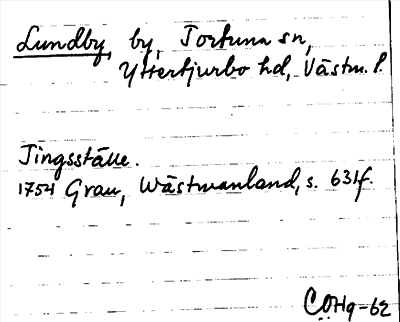 Lundby, by, Tortuna sn,
Yttertjurbo hd, Västm. l.
Tingsställe.
1754 Grau, Wästmanland, s. 631f.
COHg-62